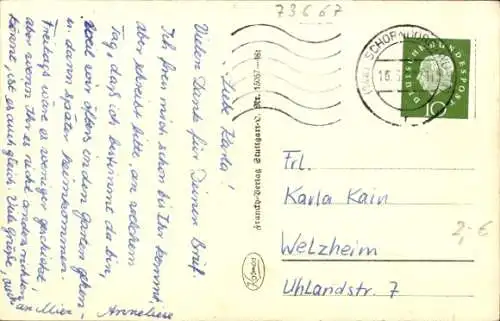 73667
Liebe Karla!
Vielen Dank für Deinen Brief.
Ich freu mich schon bis Ihr kommt,
aber schreibt bitte an welchem
Tag, daß ich bestimmt da bin,
weil wir öfters in den Garten gehen
u. dann später heimkommen.
Freitags wäre es weniger geschickt,
aber wenn Ihr es nicht anders richten
könnt, ist es auch gleich. Viele Grüße, auch
an Mien, Anneliese
Franckh-Verlag, Stuttgart-O. Nr. 15057-161
Kosmos
SCHORNDORF
DEUTSCHE BUNDESPOST
10
Frl.
Karla Kain
Welzheim
Uhlandstr. 7
2,- €